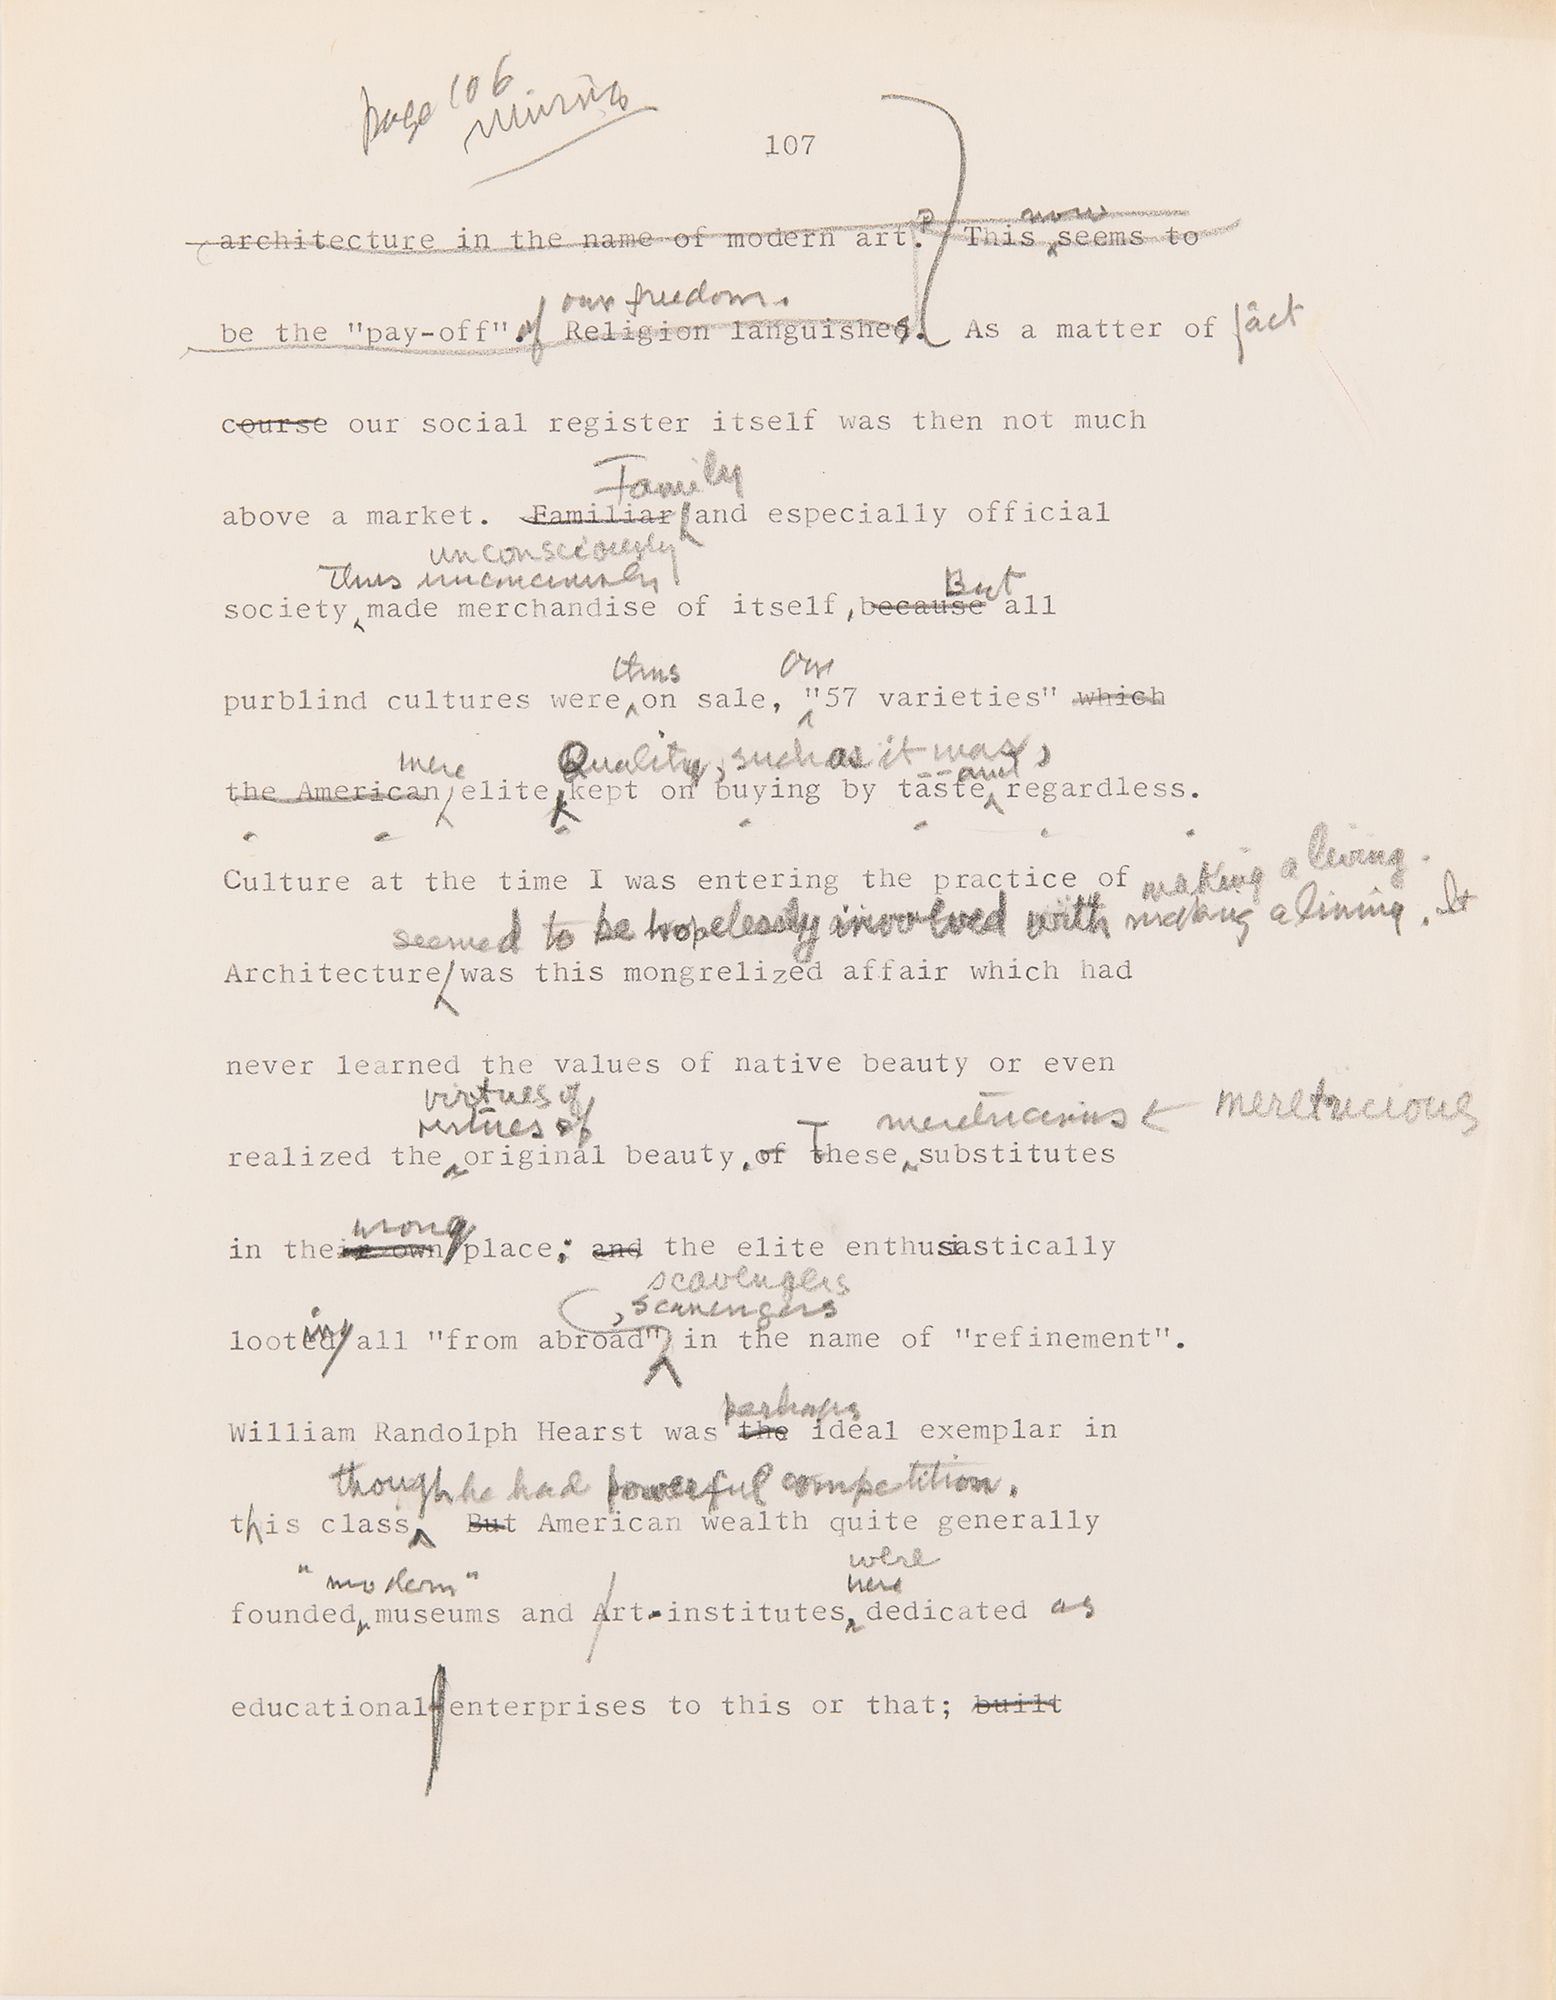 page 106
missing
107
now
architecture in the name of modern art.? This seems to
our freedom.
be the "pay-off". of Religion languishes. As a matter of fact
course our social register itself was then not much
Family
above a market. Familiar and especially official
unconsciously
Thus unconsciously But
society, made merchandise of itself, because all
thus Our
purblind cultures were on sale, "57 varieties" which
mere Quality, such as it was, and
the American elite, kept on buying by taste, regardless.
Culture at the time I was entering the practice of making a living.
seemed to be hopelessly involved with making a living. It
Architecture was this mongrelized affair which had
never learned the values of native beauty or even
virtues of
virtues of meretricious meretricious
realized the original beauty. of These substitutes
wrong
in their own place; and the elite enthusiastically
scavengers
ing , scavengers
looted all "from abroad" in the name of "refinement".
perhaps
William Randolph Hearst was the ideal exemplar in
though he had powerful competition.
this class. But American wealth quite generally
were
"modern" here
founded, museums and Art-institutes, dedicated as
educational enterprises to this or that; built